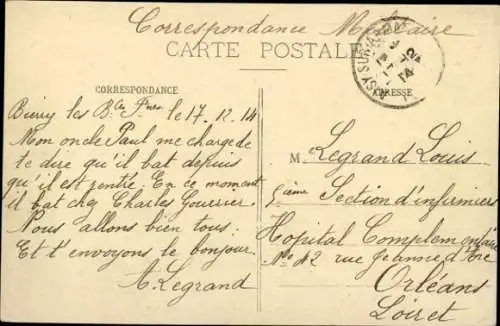 Correspondance Militaire
CARTE POSTALE
CORRESPONDANCE
ADRESSE
Bierry les B.les F.nes le 17.12.14
Mon oncle Paul me charge de
te dire qu'il bat depuis
qu'il est rentré. En ce moment
il bat chez Charles Gourrier.
Nous allons bien tous.
Et t'envoyons le bonjour.
A. Legrand
M. Legrand Louis
5ième Section d'infirmiers
Hopital Complémentaire
No 42 rue Jeanne d'Arc
Orléans
Loiret